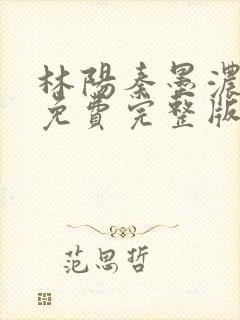 林陽秦墨濃
免費完整版
范思哲